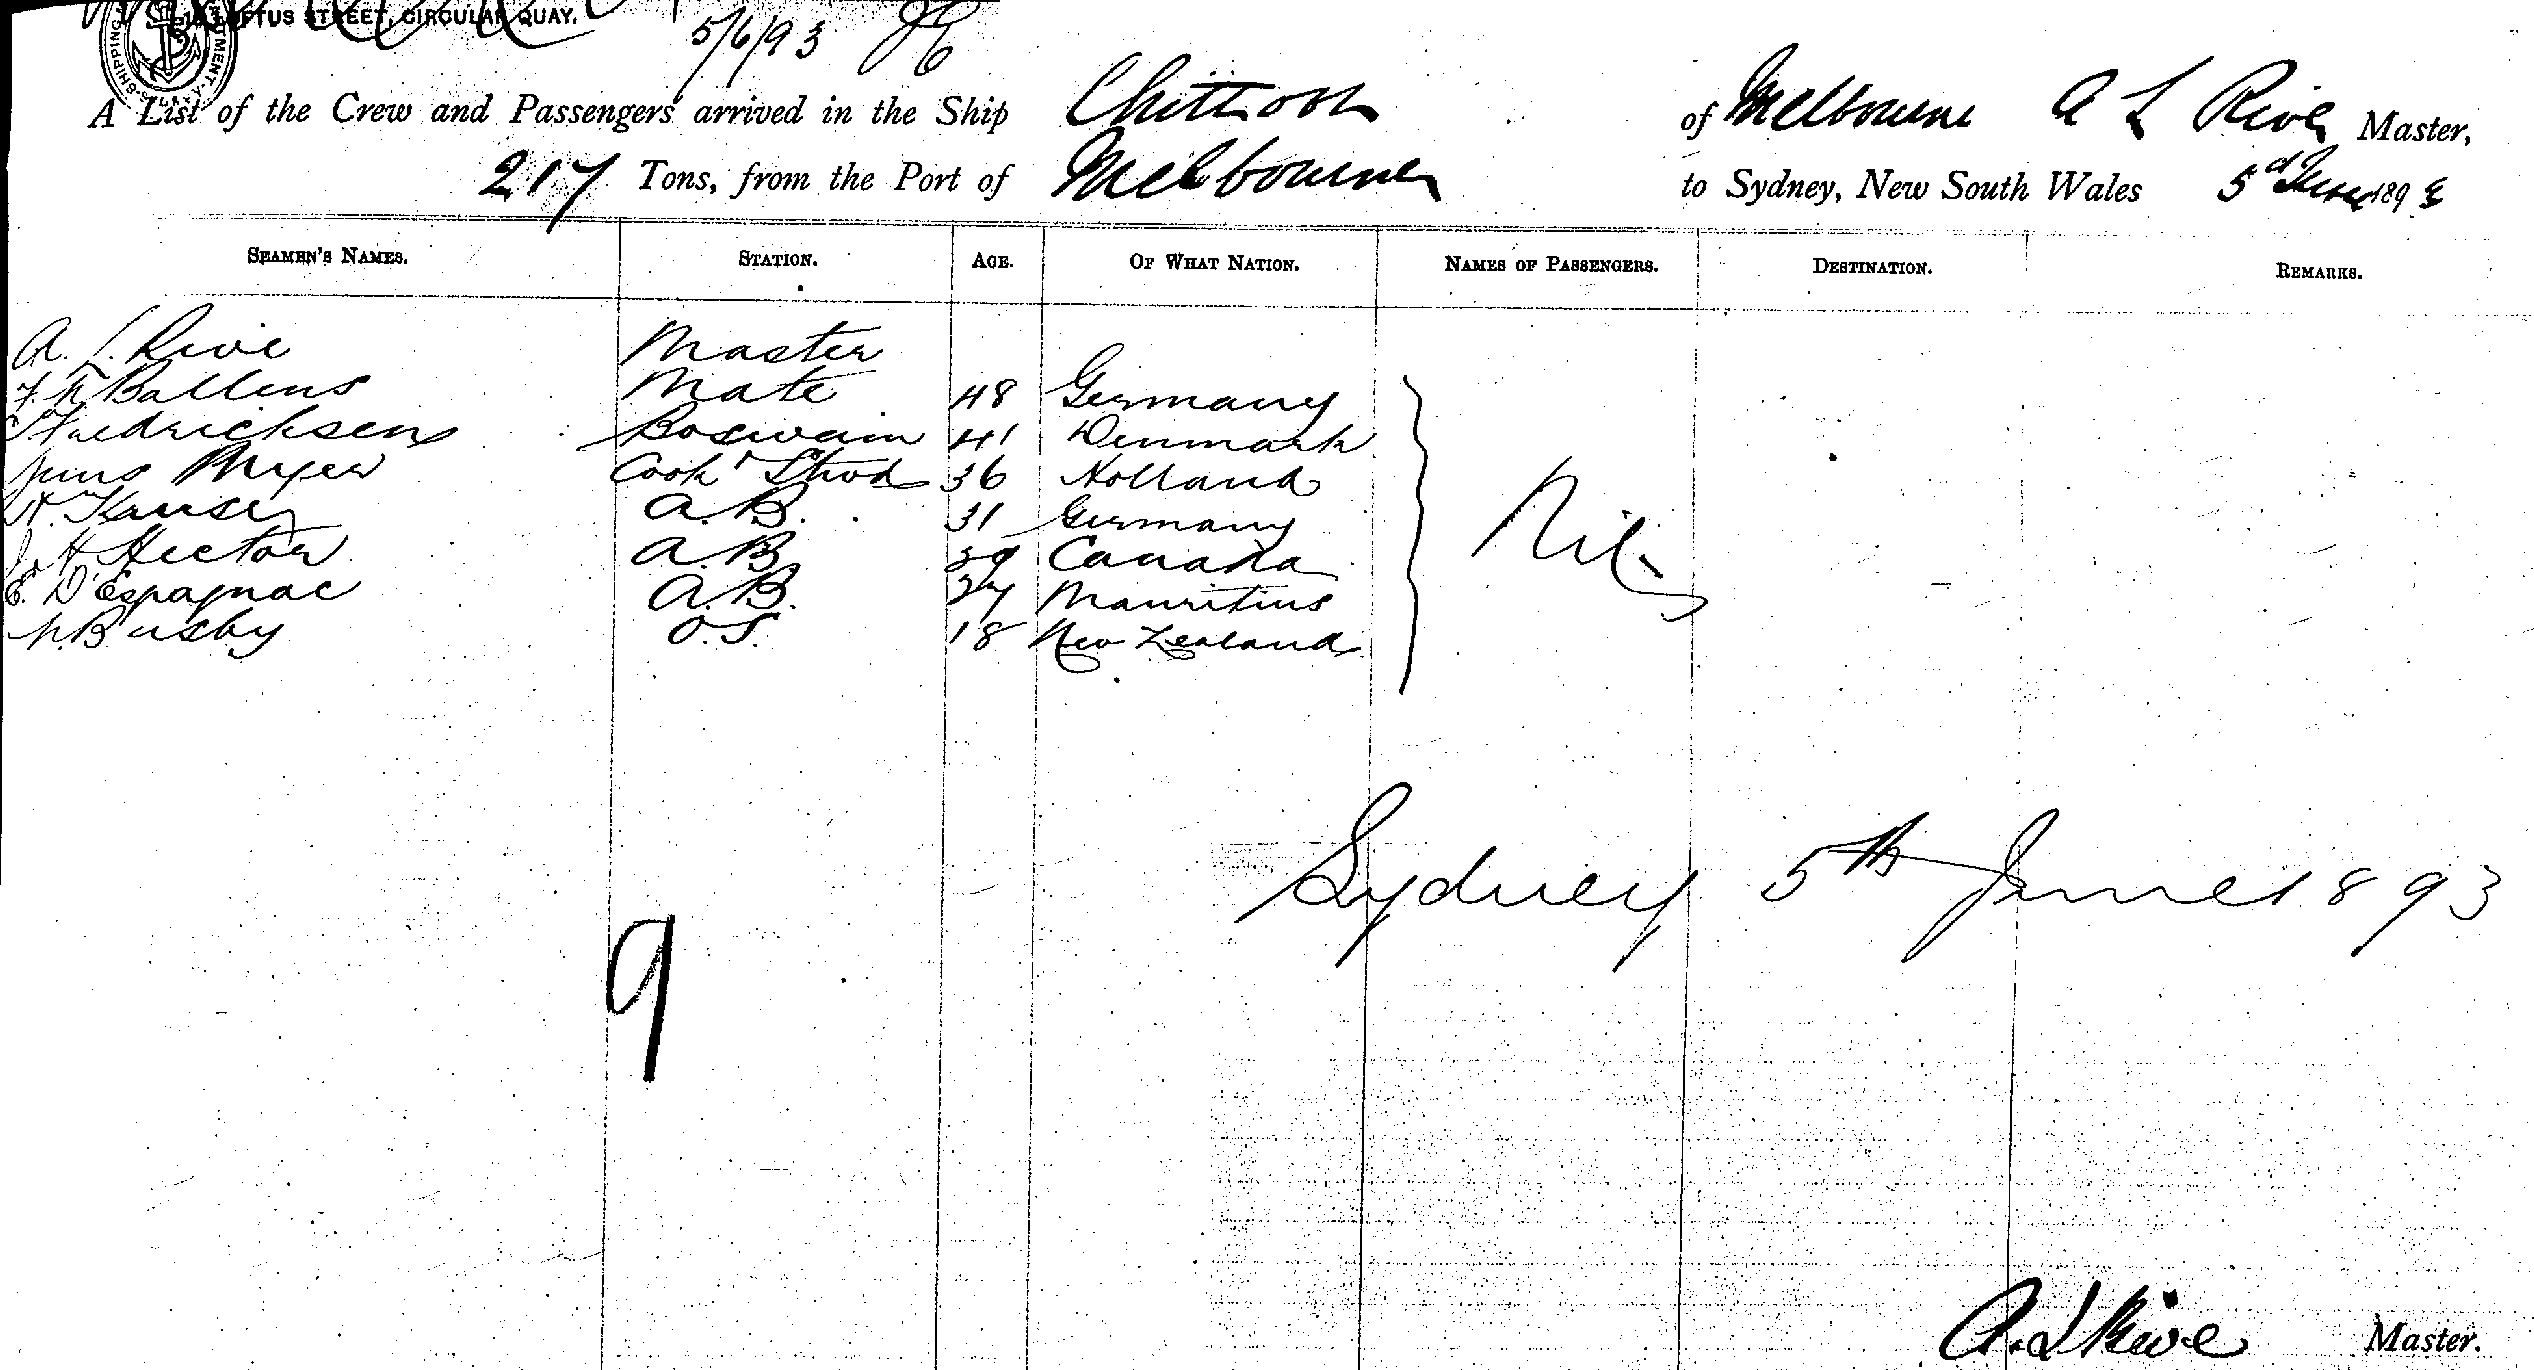 LOFTUS STREET, CIRCULAR QUAY.
5/6/93
A List of the Crew and Passengers arrived in the Ship Chittoor of Melbourne A L Rive Master,
217 Tons, from the Port of Melbourne to Sydney, New South Wales 5 June 1893
SEAMEN'S NAMES. STATION. AGE. OF WHAT NATION. NAMES OF PASSENGERS. DESTINATION. REMARKS.
A. L. Rive Master
Ballens Mate 48 Germany
Fredricksen Boswain 41 Denmark
Myer Cook & Stwd 36 Holland
A.B. 31 Germany
Hector A.B. 39 Canada
Nil
E. D'Espagnac A.B. 27 Mauritius
Busby O.S. 18 New Zealand
Sydney 5th June 1893
9
A. L Rive Master.